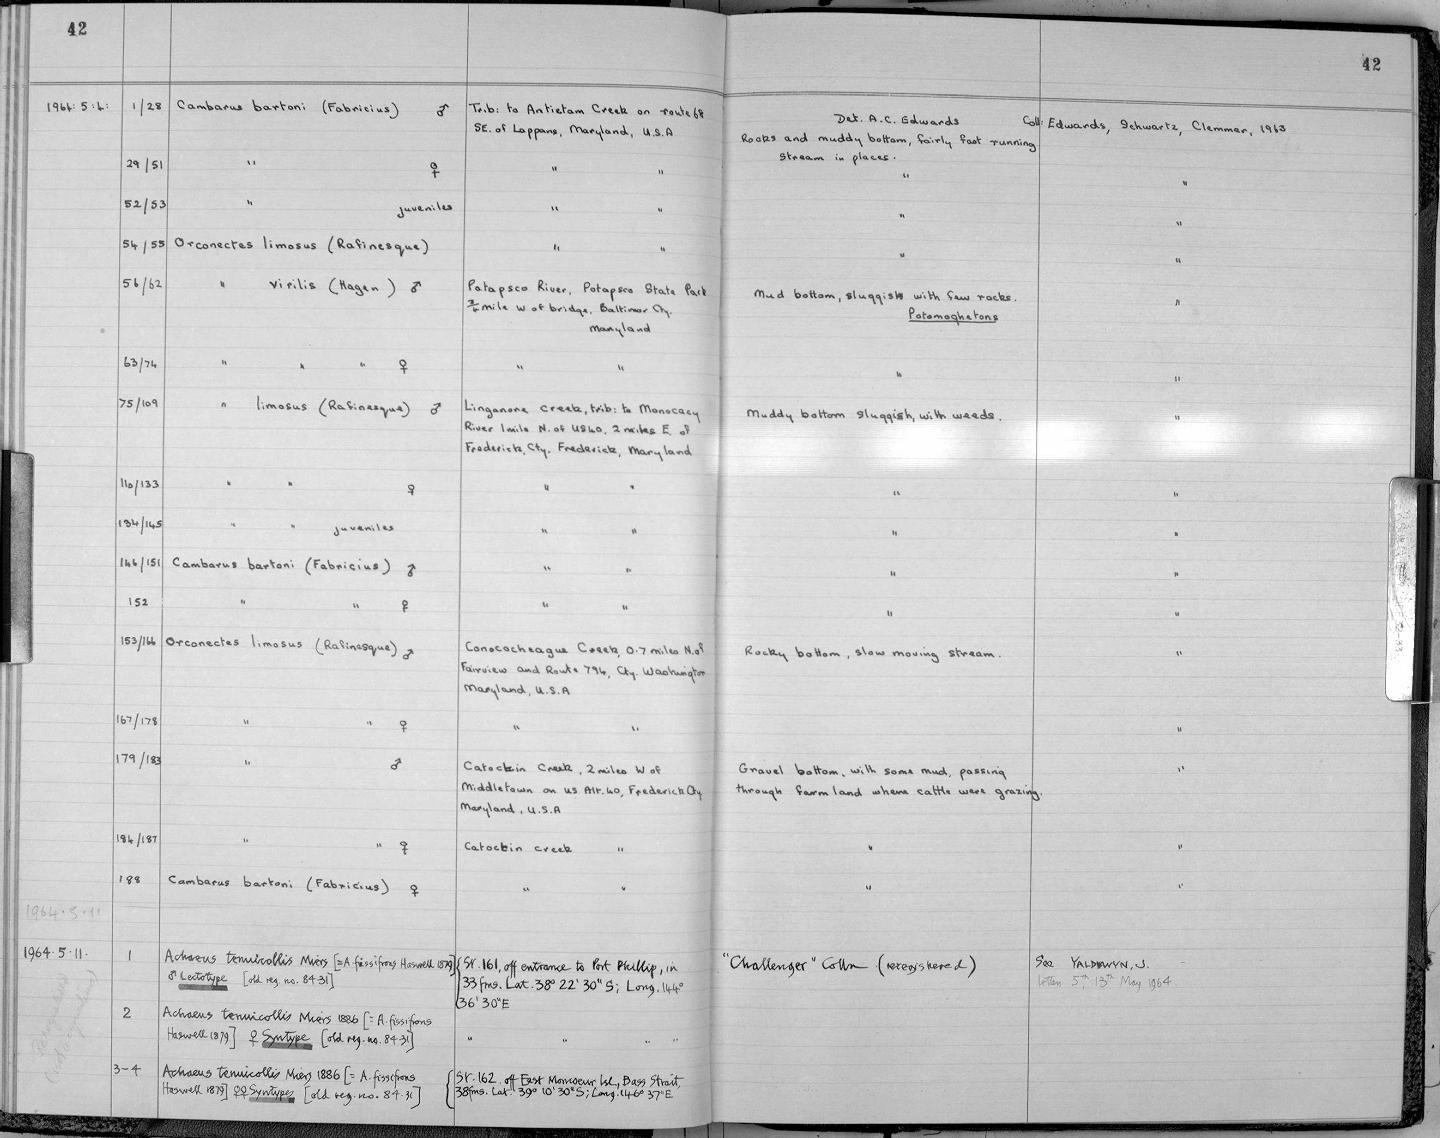 42
42
1964·5·4· 1/28 Cambarus bartoni (Fabricius) ♂ Trib: to Antietam Creek on route 68 Det. A.C. Edwards Coll: Edwards, Schwartz, Clemmer, 1963
SE. of Lappans, Maryland, U.S.A Rocks and muddy bottom, fairly fast running
stream in places.
29/51 " ♀ " " " "
52/53 " juveniles " " " "
54/55 Orconectes limosus (Rafinesque) " " " "
56/62 " virilis (Hagen) ♂ Patapsco River, Patapsco State Park Mud bottom, sluggish with few rocks. "
¾ mile W of bridge, Baltimor Cty. Potomoghetons
Maryland
63/74 " " " ♀ " " " "
75/109 " limosus (Rafinesque) ♂ Linganore Creek, trib: to Monocacy Muddy bottom sluggish, with weeds. "
River 1 mile N. of US40, 2 miles E. of
Frederick, Cty. Frederick, Maryland
110/133 " " ♀ " " " "
134/145 " " juveniles " " " "
146/151 Cambarus bartoni (Fabricius) ♂ " " " "
152 " " ♀ " " " "
153/166 Orconectes limosus (Rafinesque) ♂ Conococheague Creek, 0·7 miles N. of Rocky bottom, slow moving stream. "
Fairview and Route 794, Cty. Washington
Maryland, U.S.A
167/178 " " ♀ " " "
179/183 " ♂ Catockin Creek, 2 miles W of Gravel bottom, with some mud, passing "
Middletown on US Alt. 40, Frederick Cty through farm land where cattle were grazing.
Maryland, U.S.A
184/187 " " ♀ Catockin creek " " "
188 Cambarus bartoni (Fabricius) ♀ " " " "
1964·5·11
1964·5·11. 1 Achaeus tenuicollis Miers [= A. fissifrons Haswell 1879] St. 161, off entrance to Port Phillip, in "Challenger" Colln (reregistered) See YALDWYN, J.
♂ Lectotype [old reg. no. 84·31] 33 fms. Lat. 38° 22' 30" S; Long. 144° letters 5th, 13th May 1964.
36' 30" E
2 Achaeus tenuicollis Miers 1886 [= A. fissifrons
Haswell 1879] ♀ Syntype [old reg. no. 84·31] " " " "
3-4 Achaeus tenuicollis Miers 1886 [= A. fissifrons St. 162. off East Moncoeur Isl, Bass Strait,
Haswell 1879] ♀♀ Syntypes [old reg. no. 84·31] 38 fms. Lat. 39° 10' 30" S; Long. 146° 37" E